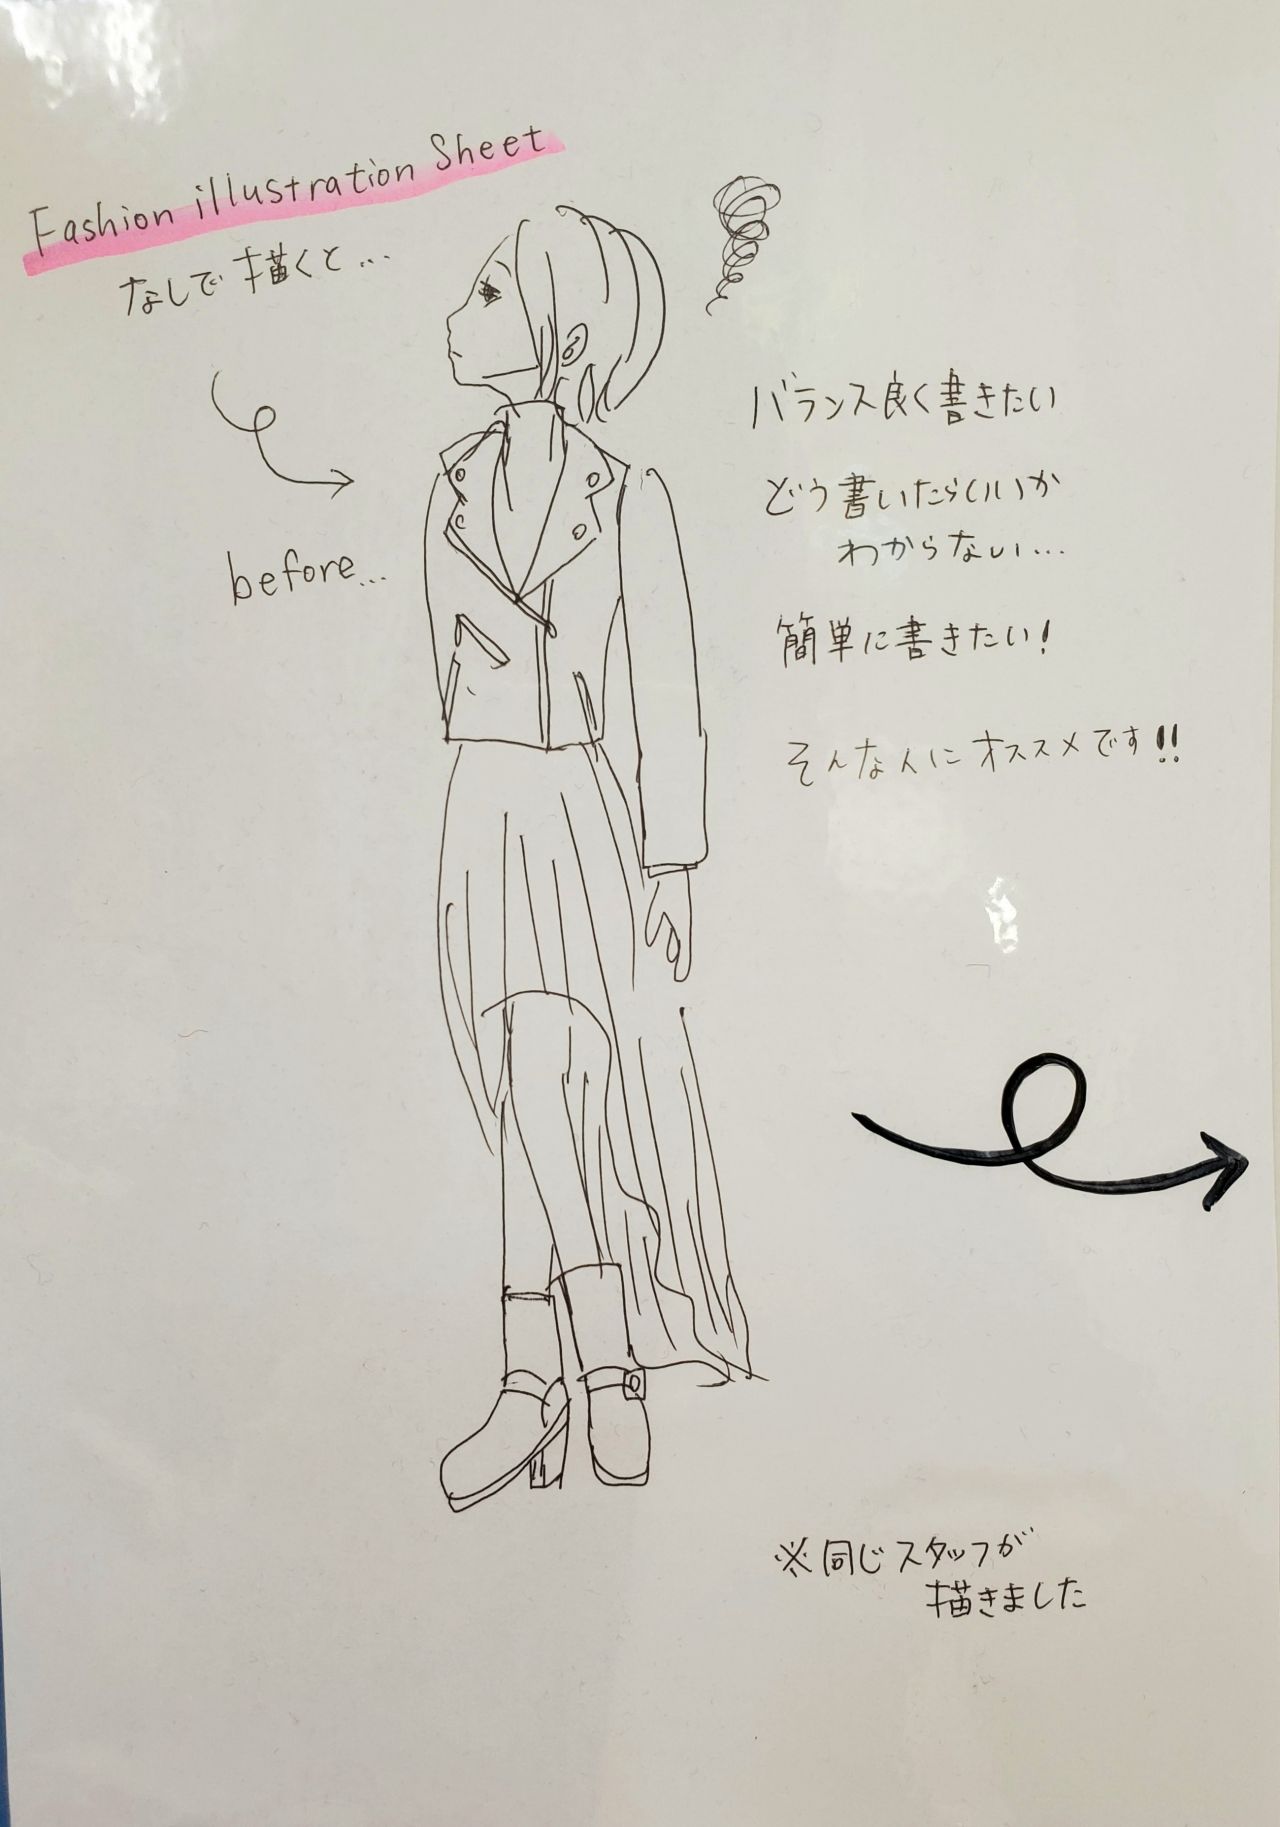 Fashion illustration Sheet
なしで描くと...
before...
バランス良く書きたい
どう書いたらいいか
わからない...
簡単に書きたい!
そんな人にオススメです!!
※同じスタッフが
描きました